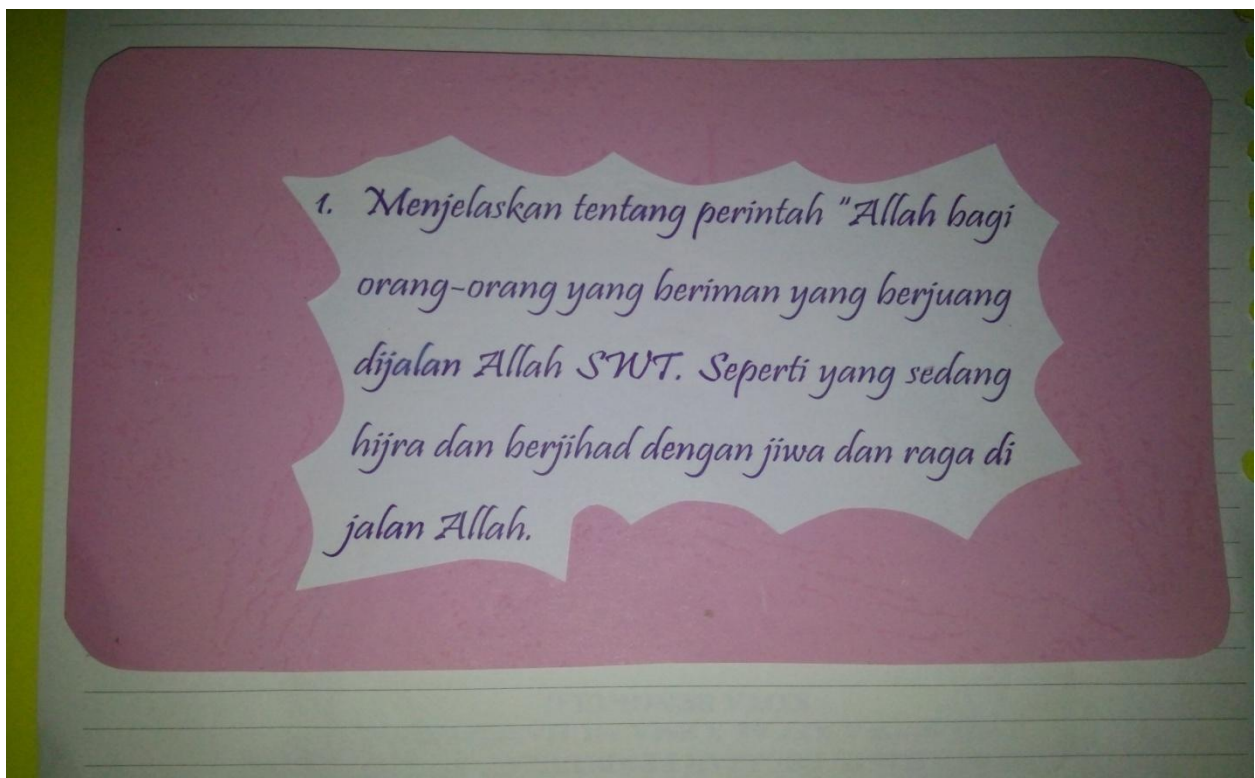 1. Menjelaskan tentang perintah "Allah bagi
orang-orang yang beriman yang berjuang
dijalan Allah SWT. Seperti yang sedang
hijra dan berjihad dengan jiwa dan raga di
jalan Allah.